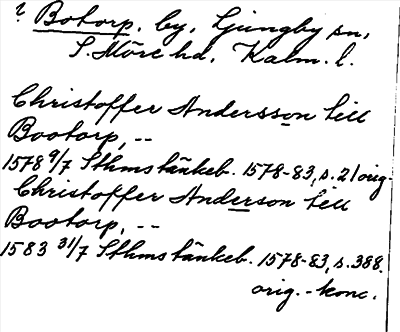 ? Botorp, by, Ljungby sn,
S. Möre hd, Kalm. l.
Christoffer Andersson till
Bootorp, --
1578 9/7 Sthms tänkeb. 1578-83, s. 21 orig.
Christoffer Anderson till
Bootorp, --
1583 31/7 Sthms tänkeb. 1578-83, s. 388.
orig.-konc.